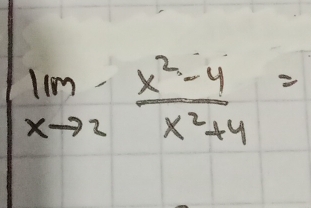 lim x→2 (x²-4)/(x²+4) =